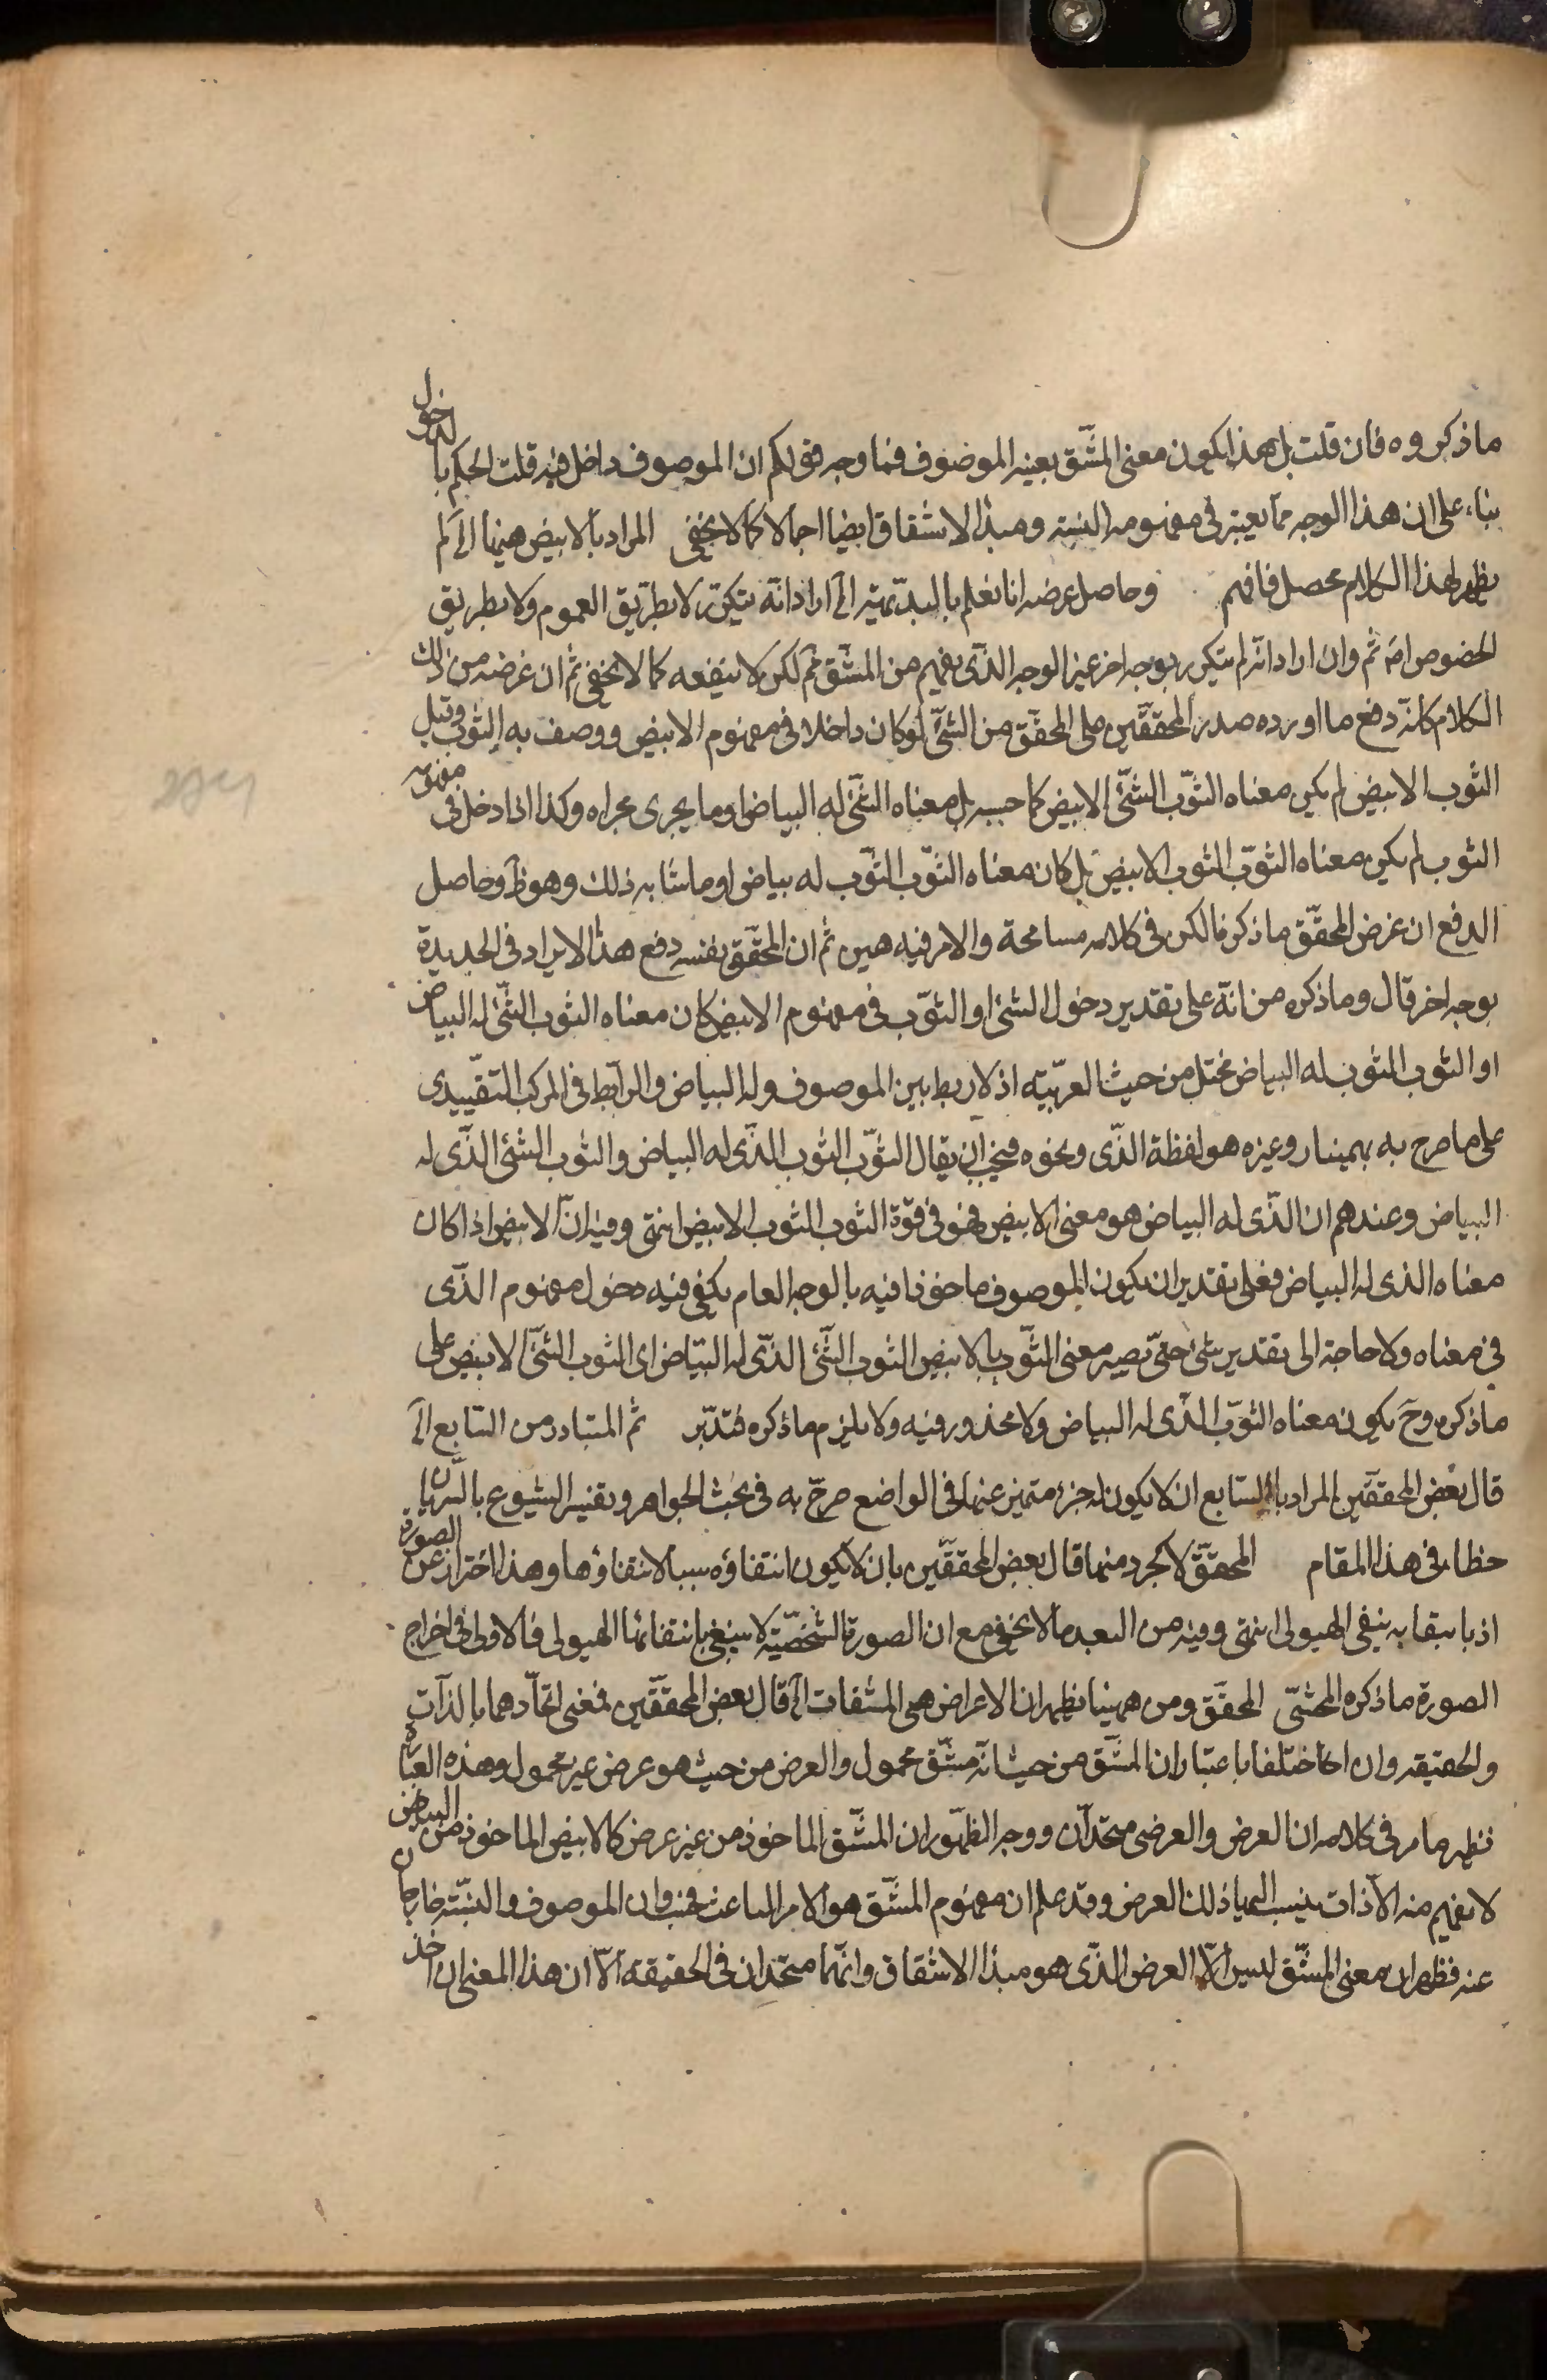 ماذكروه فان قلت بل هذا يكون معنى المشتق بعينه الموصوف فما وجه قولكم ان الموصوف داخل فيه قلت الحكم بالدخول
بناء على ان هذا الوجه مما يعتبر في مفهومه النسبة ومبدأ الاشتقاق ايضا اجمالا كما لا يخفى المراد بالابيض هيهنا الخ لم
يظهر لهذا الكلام محصل فافهم وحاصل غرضه انا نعلم بالبديهية الخ ان اراد انه يتكرر لا بطريق العموم ولا بطريق
الخصوص امر ثم وان اراد انه لم يتكرر بوجه اخر غير الوجه الذى يفهم من المشتق فم لكن لا ينفعه كما لا يخفى ثم ان غرضه من ذلك
الكلام كانه دفع ما اورده صدر المحققين على المحقق من الشئ لو كان داخلا في مفهوم الابيض ووصف به الثوب وقيل
الثوب الابيض لم يكن معناه الثوب الشئ الابيض كما حسبه بل معناه الشئ له البياض او ما يجرى مجراه وكذا اذا دخل في مفهومه
الثوب لم يكن معناه الثوب الثوب الابيض بل كان معناه الثوب الثوب له بياض او ما شابه ذلك وهو ظ وحاصل
الدفع ان غرض المحقق ما ذكرنا لكن في كلامه مسامحة والامر فيه هين ثم ان المحقق بنفسه دفع هذا الايراد في الجديدة
بوجه اخر قال وما ذكره من انه على تقدير دخول الشئ او الثوب في مفهوم الابيض كان معناه الثوب الشئ له البياض
او الثوب الثوب له البياض مختل من حيث العربية اذ لا ربط بين الموصوف وله البياض والرابط في المركب التقييدى
على ما صرح به بهمينار وغيره هو لفظة الذى ونحوه فيجب ان يقال الثوب الثوب الذى له البياض والثوب الشئ الذى له
البياض وعندهم ان الذى له البياض هو معنى الابيض فهو في قوة الثوب الثوب الابيض انتهى وفيه ان الابيض اذا كان
معناه الذى له البياض فعلى تقدير ان يكون الموصوف ماخوذا فيه بالوجه العام يكفى فيه دخول مفهوم الذى
في معناه ولا حاجة الى تقدير شئ حتى يصير معنى الثوب بالابيض الثوب الشئ الذى له البياض اى الثوب الشئ الابيض على
ما ذكره وح يكون معناه الثوب الذى له البياض ولا محذور فيه ولا يلزم ما ذكره فتدبر ثم المتبادر من الشايع الخ
قال بعض المحققين المراد بالشايع ان لا يكون له جزء متميز عنها في الواضع صرح به في بحث الجواهر وتفسير الشيوع بالسريان
خطاء في هذا المقام المحقق لا كجرد منها قال بعض المحققين بان لا يكون انتفاؤه سببا لانتفاؤها وهذا احتراز عن الصورة
اذ بانتقابه ينفى الهيولى انتهى وفيه من البعد ما لا يخفى مع ان الصورة الشخصية لا ينبغى بانتفائها الهيولى فالاولى في اخراج
الصورة ما ذكره المحشى المحقق ومن هيهنا يظهر ان الاعراض هى المشتقات الخ قال بعض المحققين فمعنى اتحادهما بالذات
والحقيقة وان كا اختلفا باعتبار ان المشتق من حيث انه مشتق محمول والعرض من حيث هو عرض غير محمول وهذه العبارة
تظهر مامر في كلامه ان العرض والعرضى متحدان ووجه الظهور ان المشتق الماخوذ من غير عرض كالابيض الماخوذ من البياض
لا يفهم منه الا ذات ينسب اليها ذلك العرض وقد علم ان مفهوم المشتق هو الامر الباعث وان الموصوف والنسبة خارجان
عنه فظهر ان معنى المشتق ليس الا العرض الذى هو مبدأ الاشتقاق وانهما متحدان في الحقيقة الا ان هذا المعنى ان اخذ